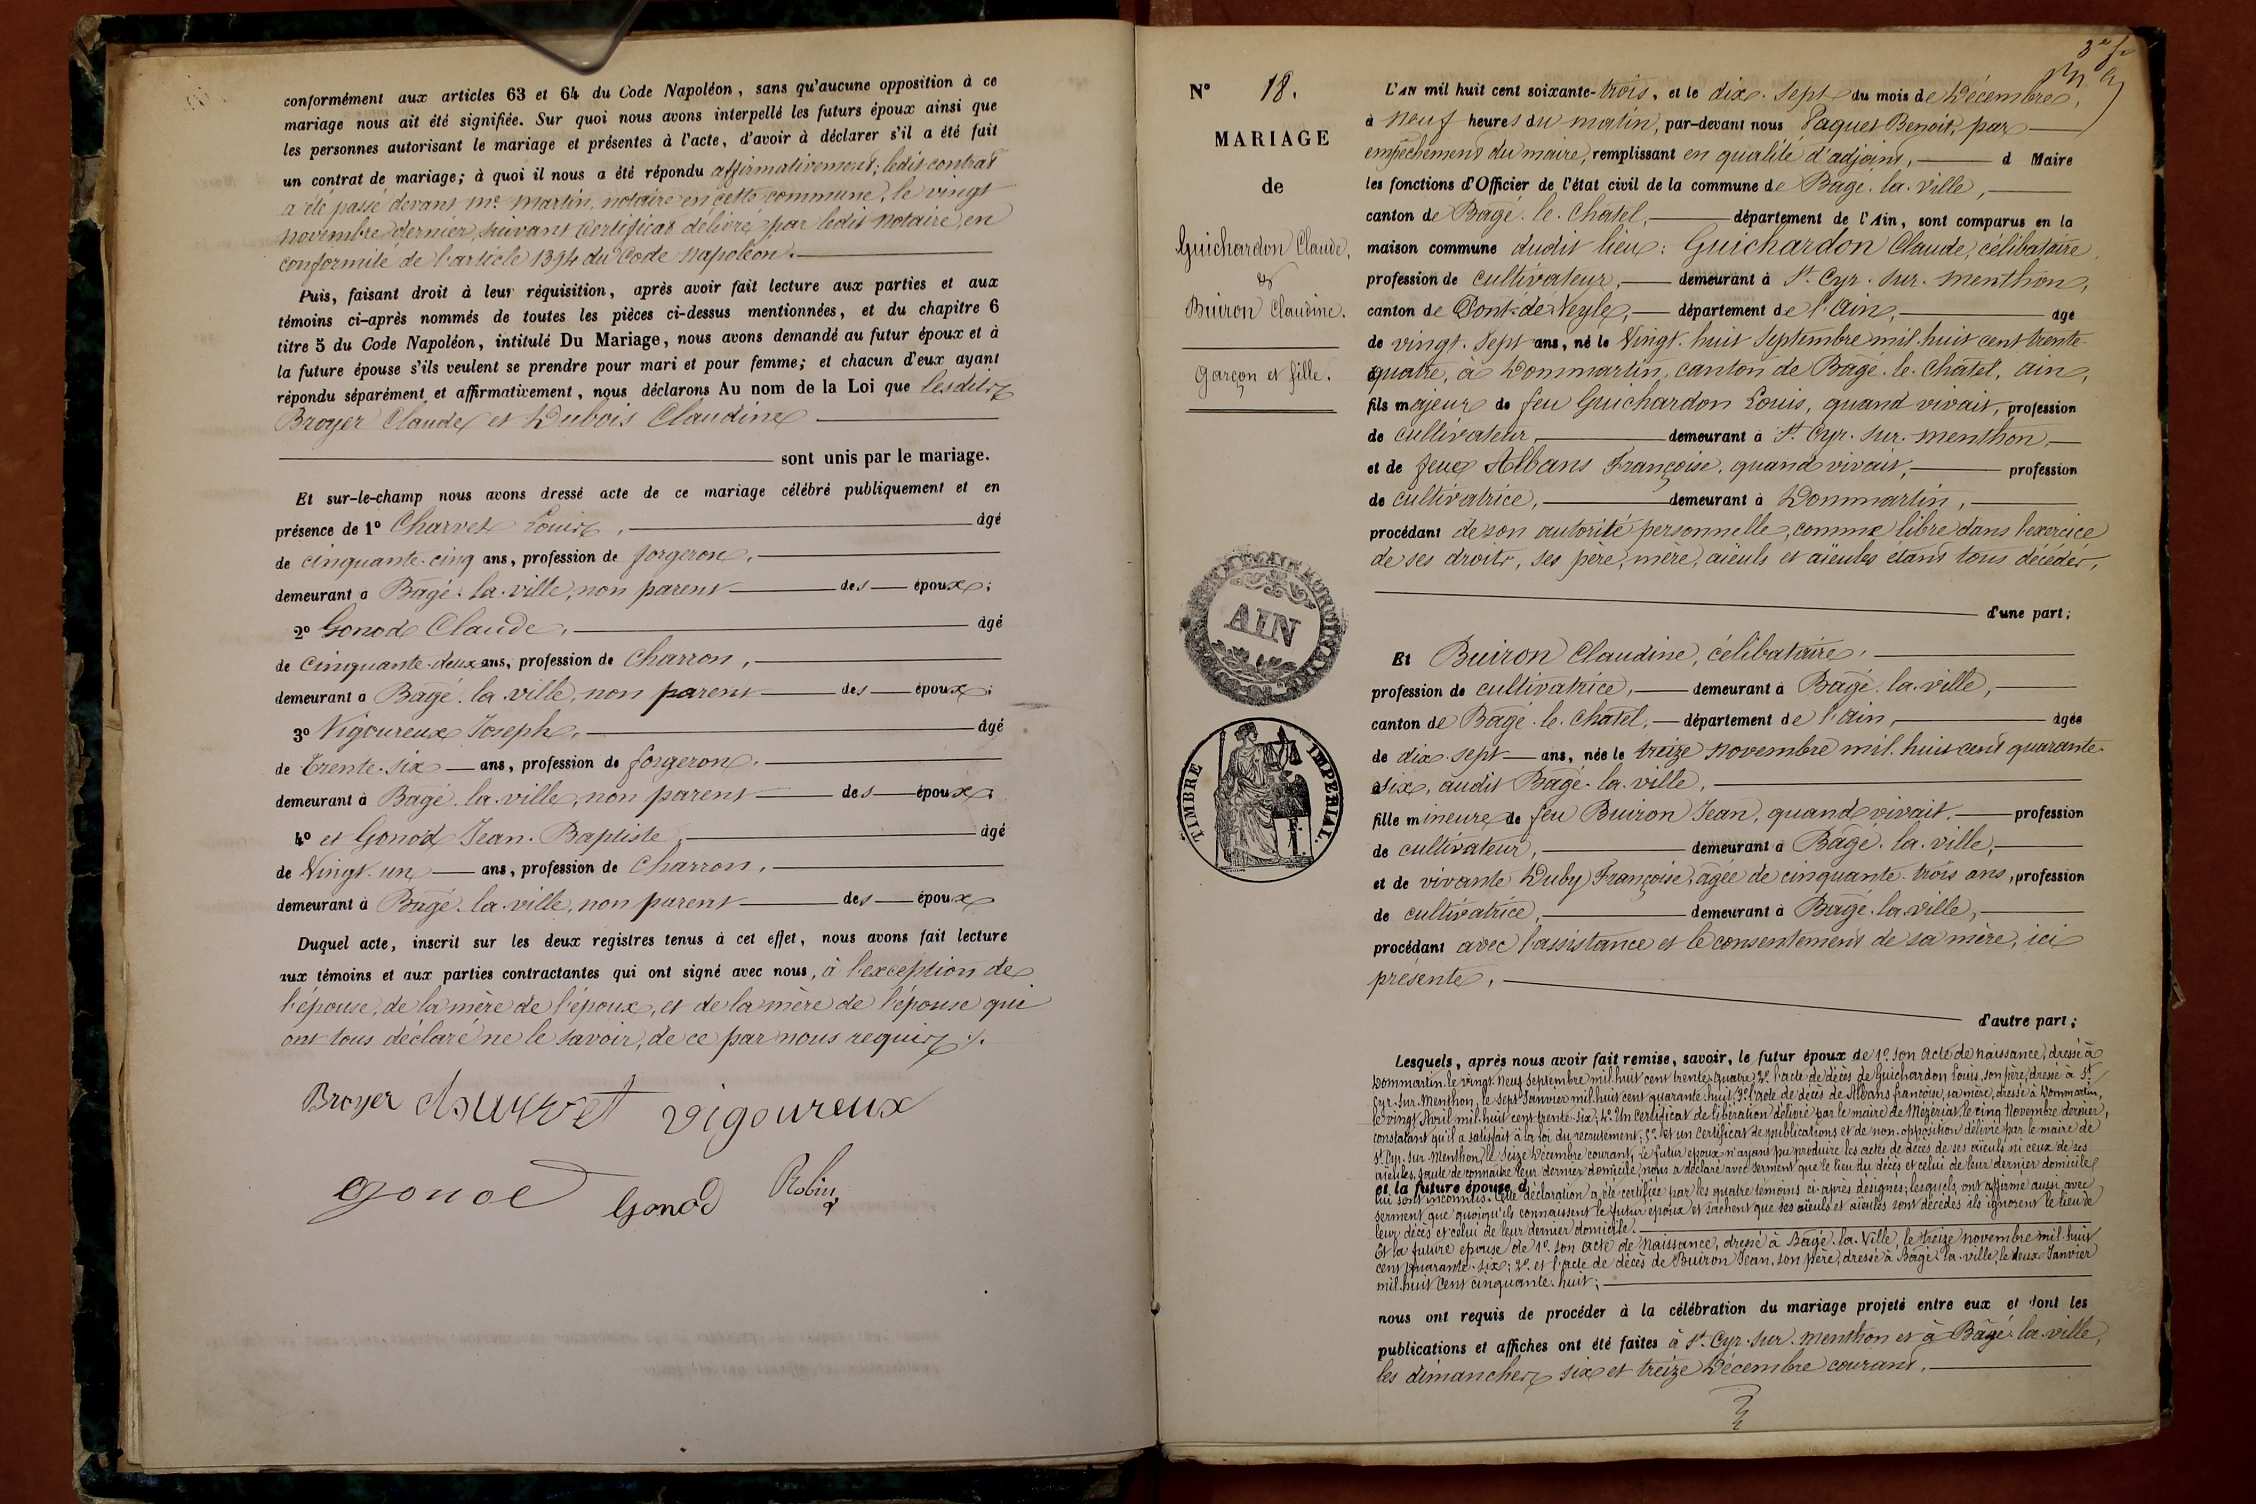 conformément aux articles 63 et 64 du Code Napoléon, sans qu'aucune opposition à ce
mariage nous ait été signifiée. Sur quoi nous avons interpellé les futurs époux ainsi que
les personnes autorisant le mariage et présentes à l'acte, d'avoir à déclarer s'il a été fait
un contrat de mariage; à quoi il nous a été répondu affirmativement; ledit contrat
a été passé devant Me. Martin, notaire en cette commune, le vingt
novembre dernier, suivant certificat délivré par ledit notaire, en
conformité de l'article 1394 du Code Napoléon.
Puis, faisant droit à leur réquisition, après avoir fait lecture aux parties et aux
témoins ci-après nommés de toutes les pièces ci-dessus mentionnées, et du chapitre 6
titre 5 du Code Napoléon, intitulé Du Mariage, nous avons demandé au futur époux et à
la future épouse s'ils veulent se prendre pour mari et pour femme; et chacun d'eux ayant
répondu séparément et affirmativement, nous déclarons Au nom de la Loi que lesdits
Broyer Claude et Dubois Claudine
sont unis par le mariage.
Et sur-le-champ nous avons dressé acte de ce mariage célébré publiquement et en
présence de 1º Charvet Louis, âgé
de cinquante-cinq ans, profession de forgeron,
demeurant à Bâgé-la-ville, non parent des époux;
2º Gonod Claude, âgé
de cinquante-deux ans, profession de charron,
demeurant à Bâgé-la-ville, non parent des époux;
3º Vigoureux Joseph, âgé
de trente-six ans, profession de forgeron,
demeurant à Bâgé-la-ville, non parent des époux;
4º et Gonod Jean-Baptiste, âgé
de vingt-un ans, profession de charron,
demeurant à Bâgé-la-ville, non parent des époux
Duquel acte, inscrit sur les deux registres tenus à cet effet, nous avons fait lecture
aux témoins et aux parties contractantes qui ont signé avec nous, à l'exception de
l'épouse, de la mère de l'époux, et de la mère de l'épouse qui
ont tous déclaré ne le savoir, de ce par nous requis ./.
Broyer Charvet Vigoureux
Gonod Gonod Robin
Nº 18.
MARIAGE
de
Guichardon Claude,
et
Buiron Claudine.
Garçon et fille.
AIN
TIMBRE IMPÉRIAL
L'AN mil huit cent soixante-trois, et le dix-sept du mois de Décembre,
à neuf heures du matin, par-devant nous Paquet Benoit, par
empêchement du maire, remplissant en qualité d'adjoint, d Maire
les fonctions d'Officier de l'état civil de la commune de Bâgé-la-ville,
canton de Bâgé-le-Châtel, département de l'Ain, sont comparus en la
maison commune dudit lieu: Guichardon Claude, célibataire,
profession de cultivateur, demeurant à St. Cyr-sur-Menthon,
canton de Pont-de-Veyle, département de l'Ain, âgé
de vingt-sept ans, né le vingt-huit septembre mil huit cent trente-
quatre, à Dommartin, canton de Bâgé-le-Châtel, Ain,
fils majeur de feu Guichardon Louis, quand vivait, profession
de cultivateur, demeurant à St. Cyr-sur-Menthon
et de feue Albans Françoise, quand vivait, profession
de cultivatrice, demeurant à Dommartin,
procédant de son autorité personnelle, comme libre dans l'exercice
de ses droits, ses père, mère, aïeuls et aïeules étant tous décédés,
d'une part;
Et Buiron Claudine, célibataire,
profession de cultivatrice, demeurant à Bâgé-la-ville,
canton de Bâgé-le-Châtel, département de l'Ain, âgée
de dix-sept ans, née le treize novembre mil huit cent quarante-
six, audit Bâgé-la-ville,
fille mineure de feu Buiron Jean, quand vivait, profession
de cultivateur, demeurant à Bâgé-la-ville,
et de vivante Duby Françoise, âgée de cinquante-trois ans, profession
de cultivatrice, demeurant à Bâgé-la-ville,
procédant avec l'assistance et le consentement de sa mère, ici
présente,
d'autre part;
Lesquels, après nous avoir fait remise, savoir, le futur époux de 1º. son acte de naissance, dressé à
Dommartin le vingt-neuf septembre mil huit cent trente-quatre; 2º. l'acte de décès de Guichardon Louis, son père, dressé à St.
Cyr-sur-Menthon, le sept Janvier mil huit cent quarante-huit; 3º. l'acte de décès de Albans Françoise, sa mère, dressé à Dommartin,
le vingt Avril mil huit cent trente-six; 4º. Un certificat de libération délivré par le maire de Mézériat, le cinq Novembre dernier,
constatant qu'il a satisfait à la loi du recrutement; 5º. et un certificat de publications et de non-opposition délivré par le maire de
St. Cyr-sur-Menthon, le seize Décembre courant. Le futur époux n'ayant pu produire les actes de décès de ses aïeuls ni ceux de ses
aïeules, faute de connaître leur dernier domicile, nous a déclaré avec serment que le lieu du décès et celui de leur dernier domicile
et la future épouse d
lui sont inconnus. Cette déclaration a été certifiée par les quatre témoins ci-après désignés, lesquels ont affirmé aussi avec
serment que quoiqu'ils connaissent le futur époux et sachent que ses aïeuls et aïeules sont décédés ils ignorent le lieu de
leur décès et celui de leur dernier domicile.
Et la future épouse de 1º. son acte de naissance, dressé à Bâgé-la-Ville, le treize novembre mil huit
cent quarante-six; 2º. et l'acte de décès de Buiron Jean, son père, dressé à Bâgé-la-ville, le deux Janvier
mil huit cent cinquante-huit;
nous ont requis de procéder à la célébration du mariage projeté entre eux et dont les
publications et affiches ont été faites à St. Cyr-sur-Menthon et à Bâgé-la-ville,
les dimanches six et treize Décembre courant.